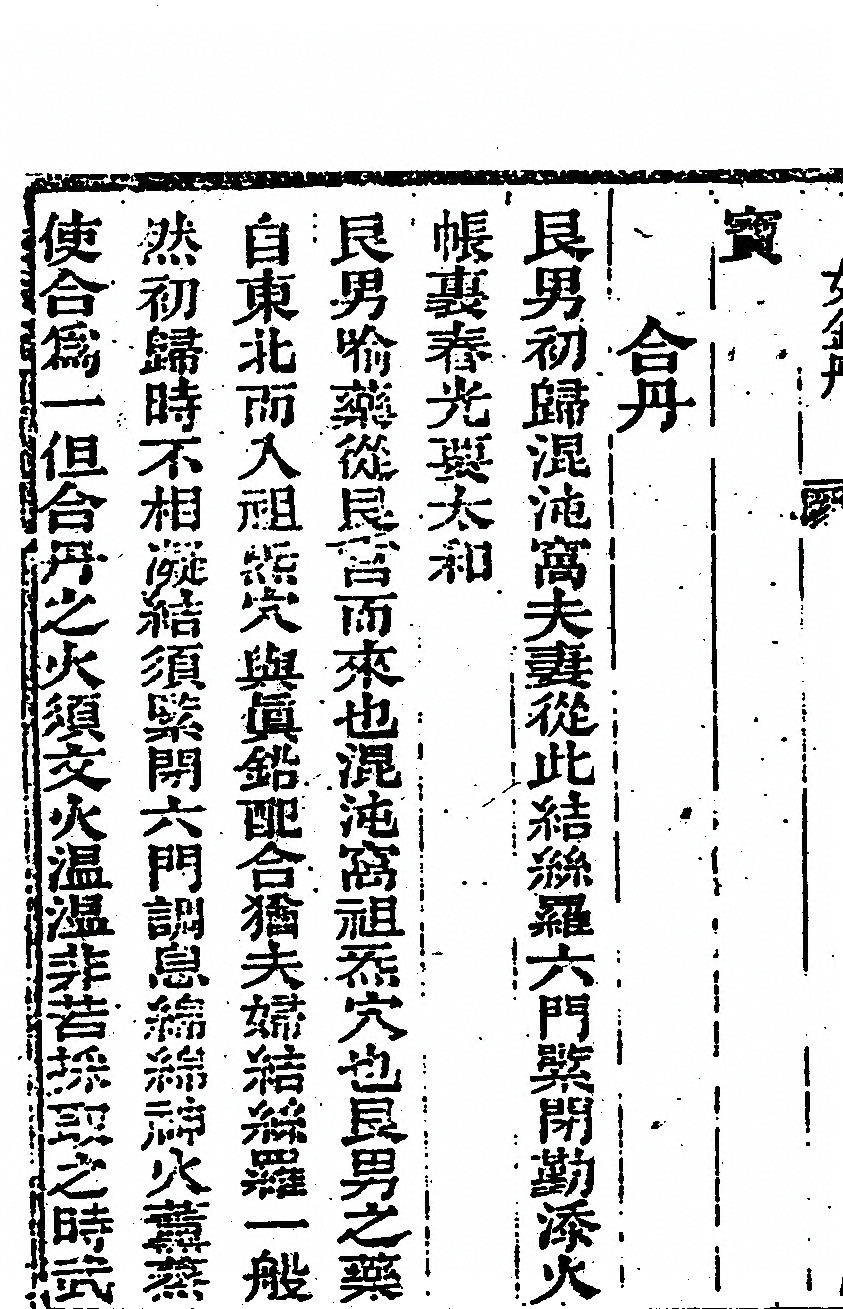 女金丹
寶
合丹
艮男初歸混沌窩夫妻從此結絲羅六門緊閉勤添火
帳裏春光要太和
艮男喻藥從艮宮而來也混沌窩祖炁穴也艮男之藥
自東北而入祖炁穴與眞鉛配合猶夫婦結絲羅一般
然初歸時不相凝結須緊閉六門調息綿綿神火薰蒸
使合爲一但合丹之火須文火温温非若採取之時武